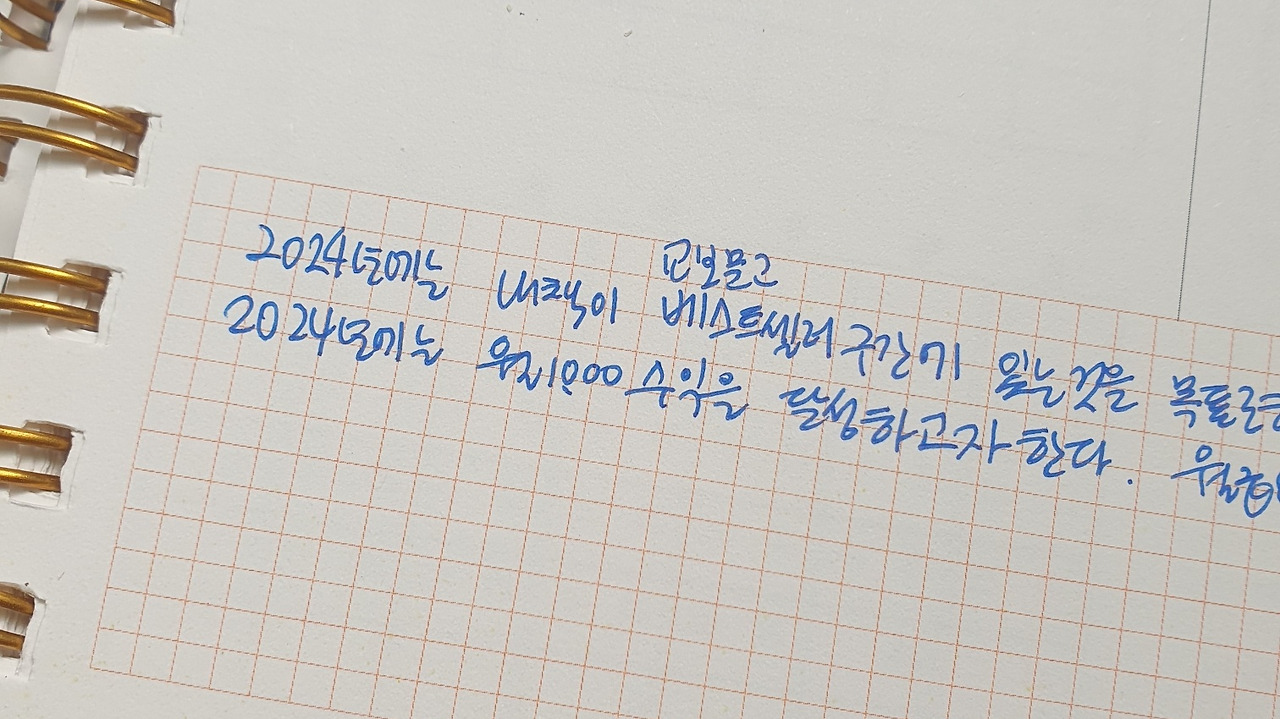 교보문고
2024년에는 내책이 베스트셀러 구간에 있는것을 목표로
2024년에는 월 1000 수익을 달성하고자 한다.